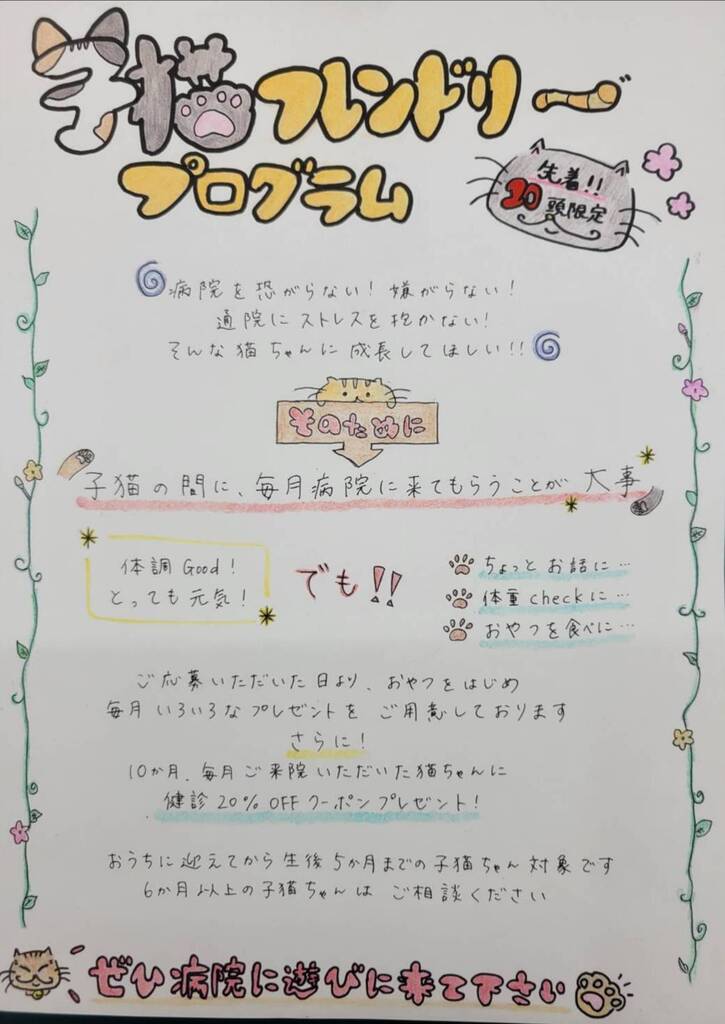 子猫フレンドリー
プログラム
先着!!
20頭限定
病院を恐がらない!嫌がらない!
通院にストレスを抱かない!
そんな猫ちゃんに成長してほしい!!
そのために
子猫の間に、毎月病院に来てもらうことが大事
体調Good!
とっても元気!
でも!!
ちょっとお話に…
体重checkに…
おやつを食べに…
ご応募いただいた日より、おやつをはじめ
毎月いろいろなプレゼントをご用意しております
さらに!
10か月、毎月ご来院いただいた猫ちゃんに
健診20%OFFクーポンプレゼント!
おうちに迎えてから生後5か月までの子猫ちゃん対象です
6か月以上の子猫ちゃんはご相談ください
ぜひ病院に遊びに来て下さい